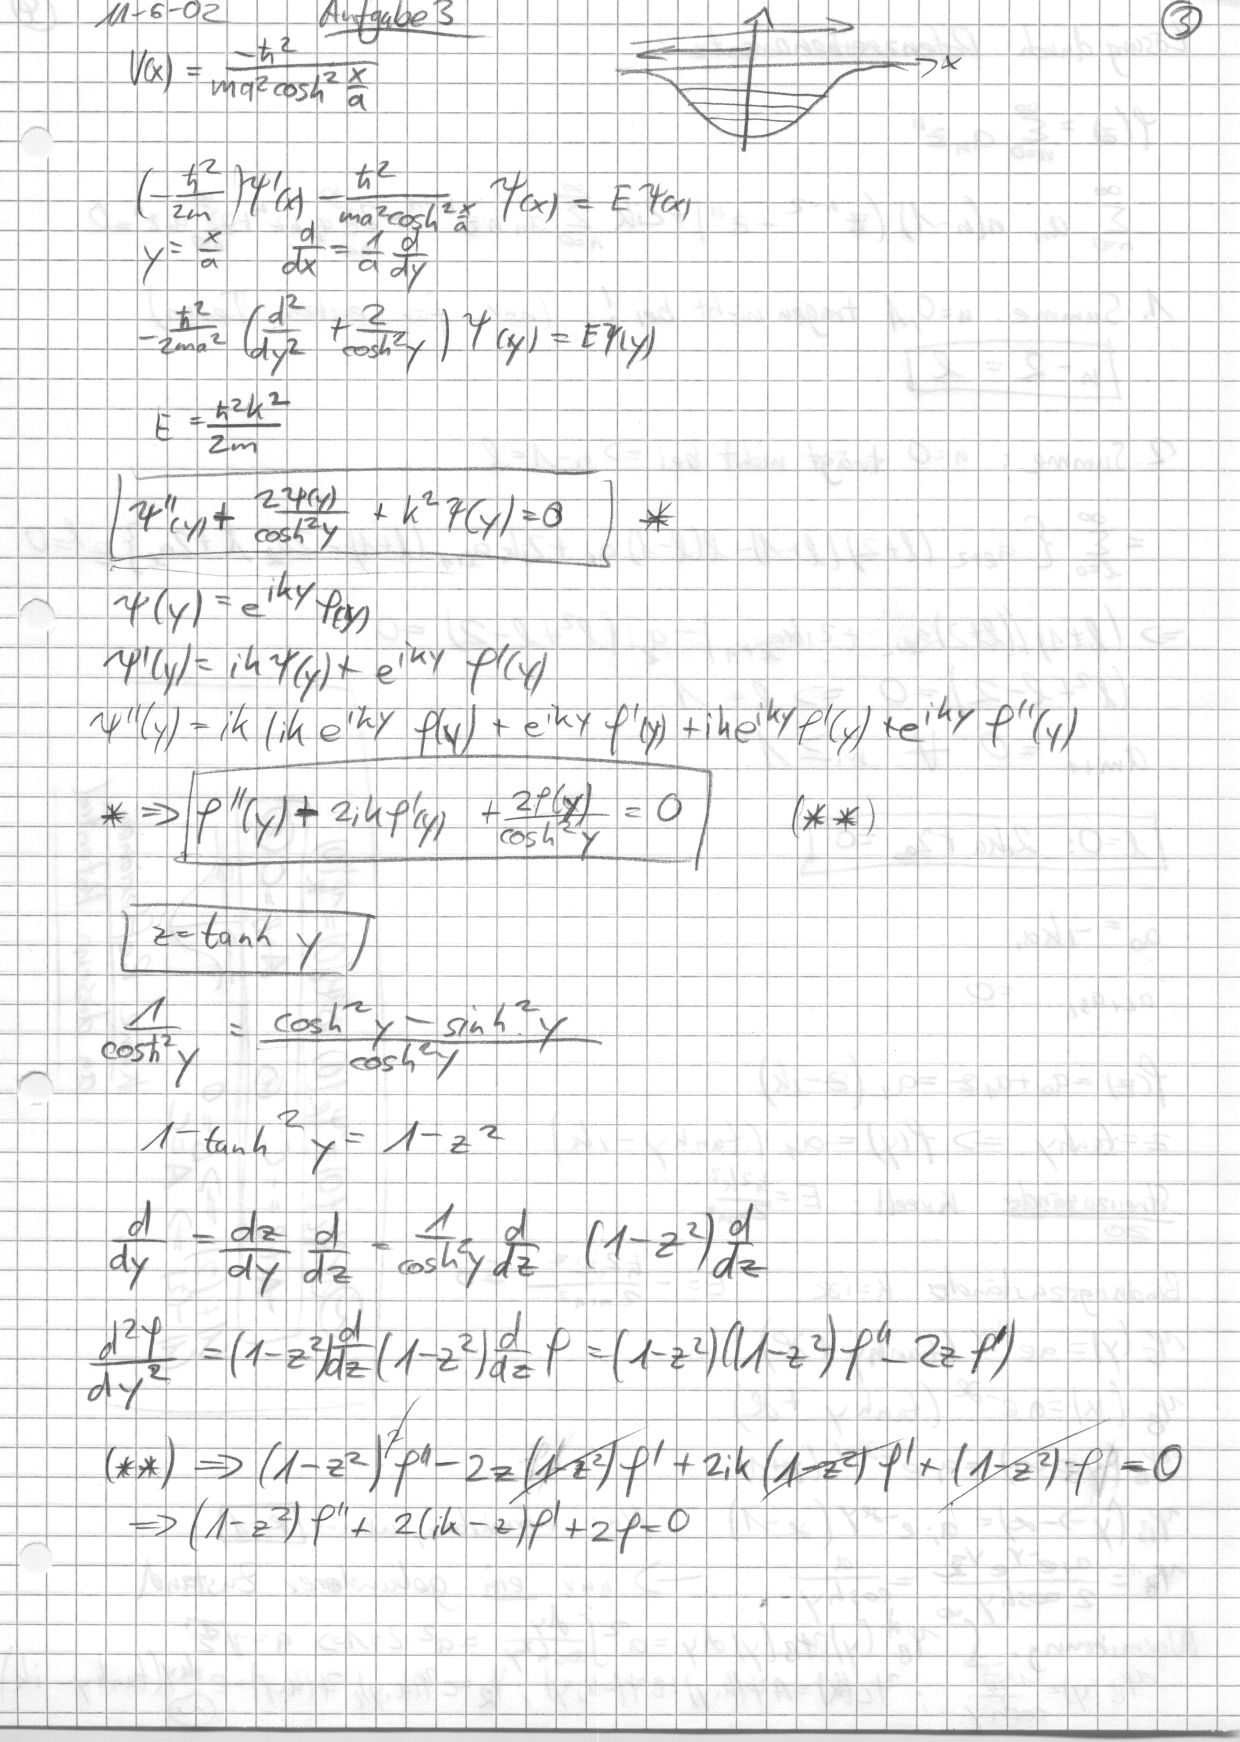 11-6-02 Aufgabe 3 ③
V(x) = -ħ² / (ma² cosh² x/a)
x
(-ħ²/2m) ψ'(x) - ħ²/(ma² cosh² x/a) ψ(x) = E ψ(x)
y = x/a d/dx = 1/a d/dy
-ħ²/2ma² (d²/dy² + 2/cosh²y) ψ(y) = Eψ(y)
E = ħ²k²/2m
ψ''(y) + 2ψ(y)/cosh²y + k² ψ(y) = 0 *
ψ(y) = e^{iky} φ(y)
ψ'(y) = ik ψ(y) + e^{iky} φ'(y)
ψ''(y) = ik (ik e^{iky} φ(y) + e^{iky} φ'(y) + ik e^{iky} φ'(y) + e^{iky} φ''(y)
* ⇒ φ''(y) + 2ik φ'(y) + 2φ(y)/cosh²y = 0 (**)
z = tanh y
1/cosh²y = (cosh²y - sinh²y)/cosh²y
1 - tanh²y = 1 - z²
d/dy = dz/dy d/dz = 1/cosh²y d/dz (1-z²) d/dz
d²φ/dy² = (1-z²) d/dz (1-z²) d/dz φ = (1-z²)((1-z²) φ'' - 2z φ')
(**) ⇒ (1-z²)² φ'' - 2z (1-z²) φ' + 2ik (1-z²) φ' + (1-z²) φ = 0
⇒ (1-z²) φ'' + 2(ik-z) φ' + 2φ = 0